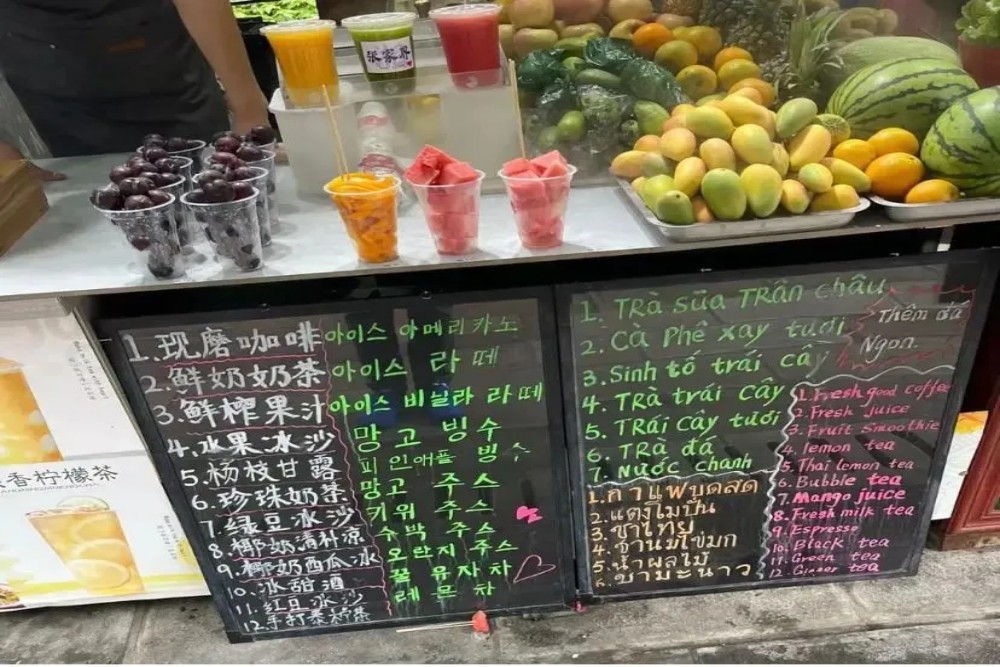 张家界
香柠檬茶
1. 现磨咖啡
2. 鲜奶奶茶
3. 鲜榨果汁
4. 水果冰沙
5 杨枝甘露
6. 珍珠奶茶
7 绿豆冰沙
8. 椰奶清补凉
9. 椰奶西瓜冰
10. 冰甜酒
11. 红豆冰沙
12. 手打泰柠茶
아이스 아메리카노
아이스 라떼
아이스 비닐라 라떼
망고 빙수
피인애플 빙수
망고 주스
키위 주스
수박 주스
오란지 주스
꿀 유자차
레몬차
1. Trà sữa Trân châu
2. Cà Phê xay tươi
3. Sinh tố trái cầy
4. Trà trái cây
5. Trái cây tươi
6. Trà đá
7. Nước chanh
Thêm đá
Ngon.
1. Fresh good coffee
2. Fresh juice
3. Fruit Smoothie
4. lemon tea
5. Thai lemon tea
6. Bubble tea
7. Mango juice
8. Fresh milk tea
9. Espresso
10. Black tea
11. Green tea
12. Ginger tea
1. กาแฟบดสด
2. แตงโมปั่น
3. ชาไทย
4. ชานมไข่มุก
5. น้ำผลไม้
6. ชามะนาว